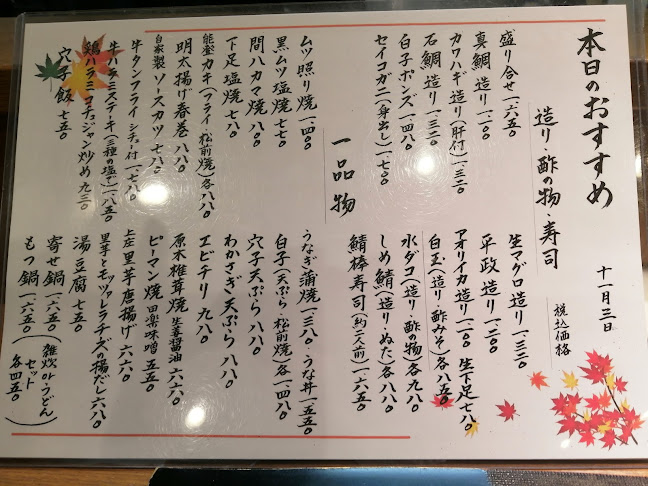 本日のおすすめ
十一月三日
税込価格
造り・酢の物・寿司
盛り合せ 一、六五〇
真鯛造り 一、一二〇
カワハギ造り(肝付) 一、三二〇
石鯛造り 一、三二〇
白子ポンズ 一、四八〇
セイコガニ(身出し) 一、七〇〇
生マグロ造り 一、三二〇
平政造り 一、一二〇
アオリイカ造り 一、一二〇 生下足 七八〇
白玉(造り・酢みそ) 各八五〇
水ダコ(造り・酢の物) 各九八〇
しめ鯖(造り・ぬた) 各八八〇
鯖棒寿司(約二人前) 一、六五〇
一品物
ムツ照り焼 一、四〇〇
黒ムツ塩焼 七七〇
間八カマ焼 八八〇
下足塩焼 七八〇
能登カキ(フライ・松前焼) 各八八〇
明太揚げ春巻 八八〇
自家製ソースカツ 七八〇
牛タンフライ シチュー付 一、七八〇
牛ハラミステーキ(三種の塩で) 一、八五〇
鶏ハラミコチュジャン炒め 九三〇
穴子飯 七五〇
うなぎ蒲焼 一、三八〇・うな丼 一、五五〇
白子(天ぷら・松前焼) 各一、四八〇
穴子天ぷら 八八〇
わかさぎ天ぷら 八八〇
エビチリ 九八〇
原木椎茸焼 生姜醤油 六六〇
ピーマン焼 田楽味噌 五五〇
上庄里芋唐揚げ 六六〇
里芋とモッツァレラチーズの揚だし 六八〇
湯豆腐 七五〇
寄せ鍋 一、六五〇
もつ鍋 一、六五〇
(雑炊orうどんセット 各四五〇)